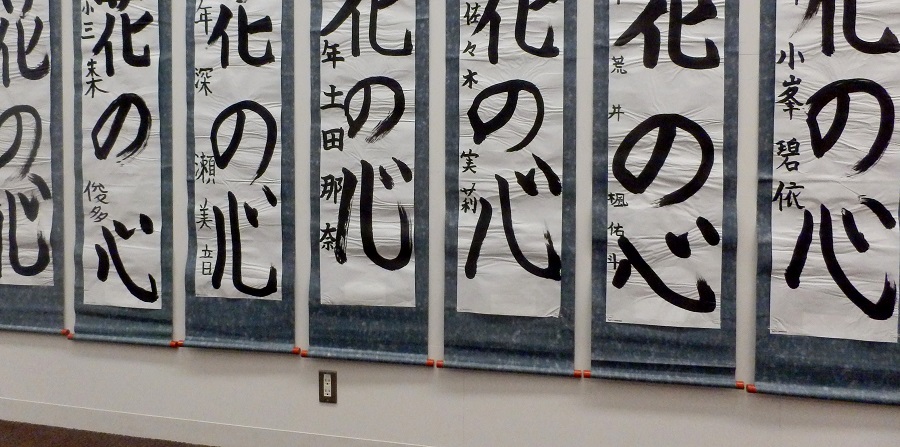 花の心
年 小峯 碧依
花の心
荒井 楓佑斗
花の心
佐々木 実莉
花の心
年 土田 那奈
花の心
年 深瀬 美音
花の心
小三 朱 俊多
花の心